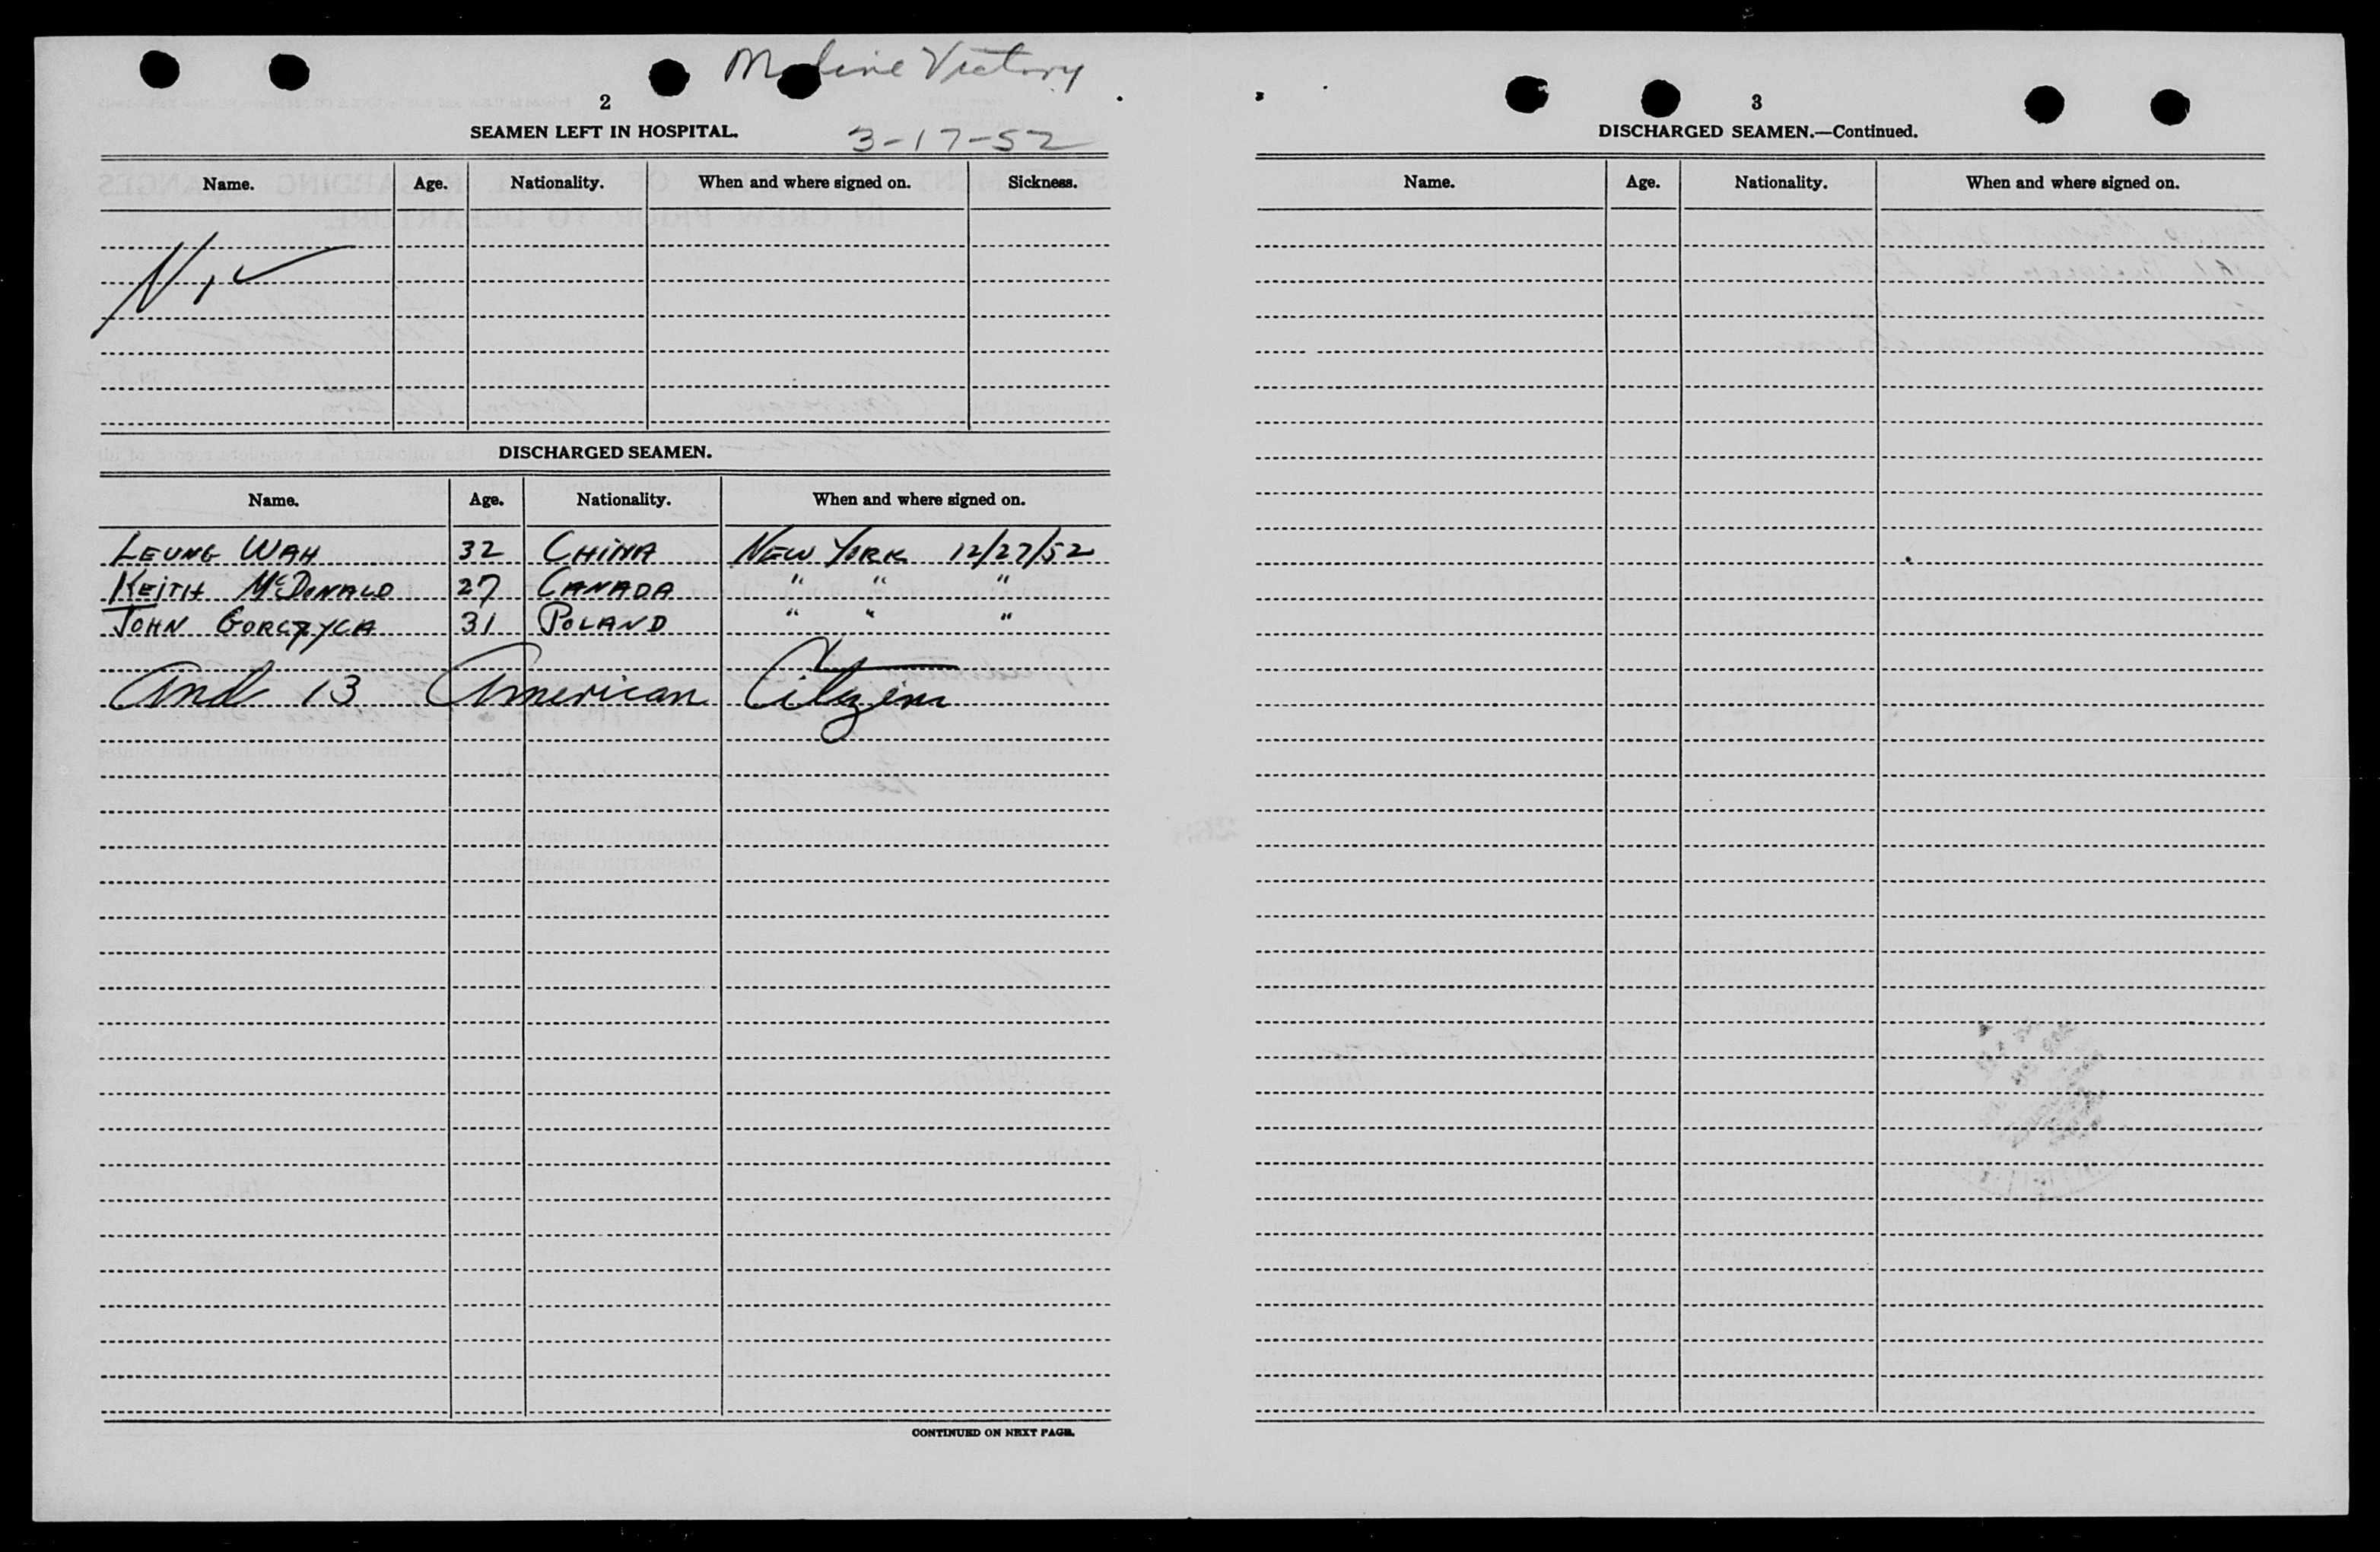 Moline Victory
2
SEAMEN LEFT IN HOSPITAL.
3-17-52
Name. Age. Nationality. When and where signed on. Sickness.
DISCHARGED SEAMEN.
Name. Age. Nationality. When and where signed on.
LEUNG WAH 32 CHINA NEW YORK 12/27/52
KEITH McDONALD 27 CANADA " " "
JOHN GORCZYCA 31 POLAND " " "
And 13 American Citizens
CONTINUED ON NEXT PAGE.
3
DISCHARGED SEAMEN.—Continued.
Name. Age. Nationality. When and where signed on.